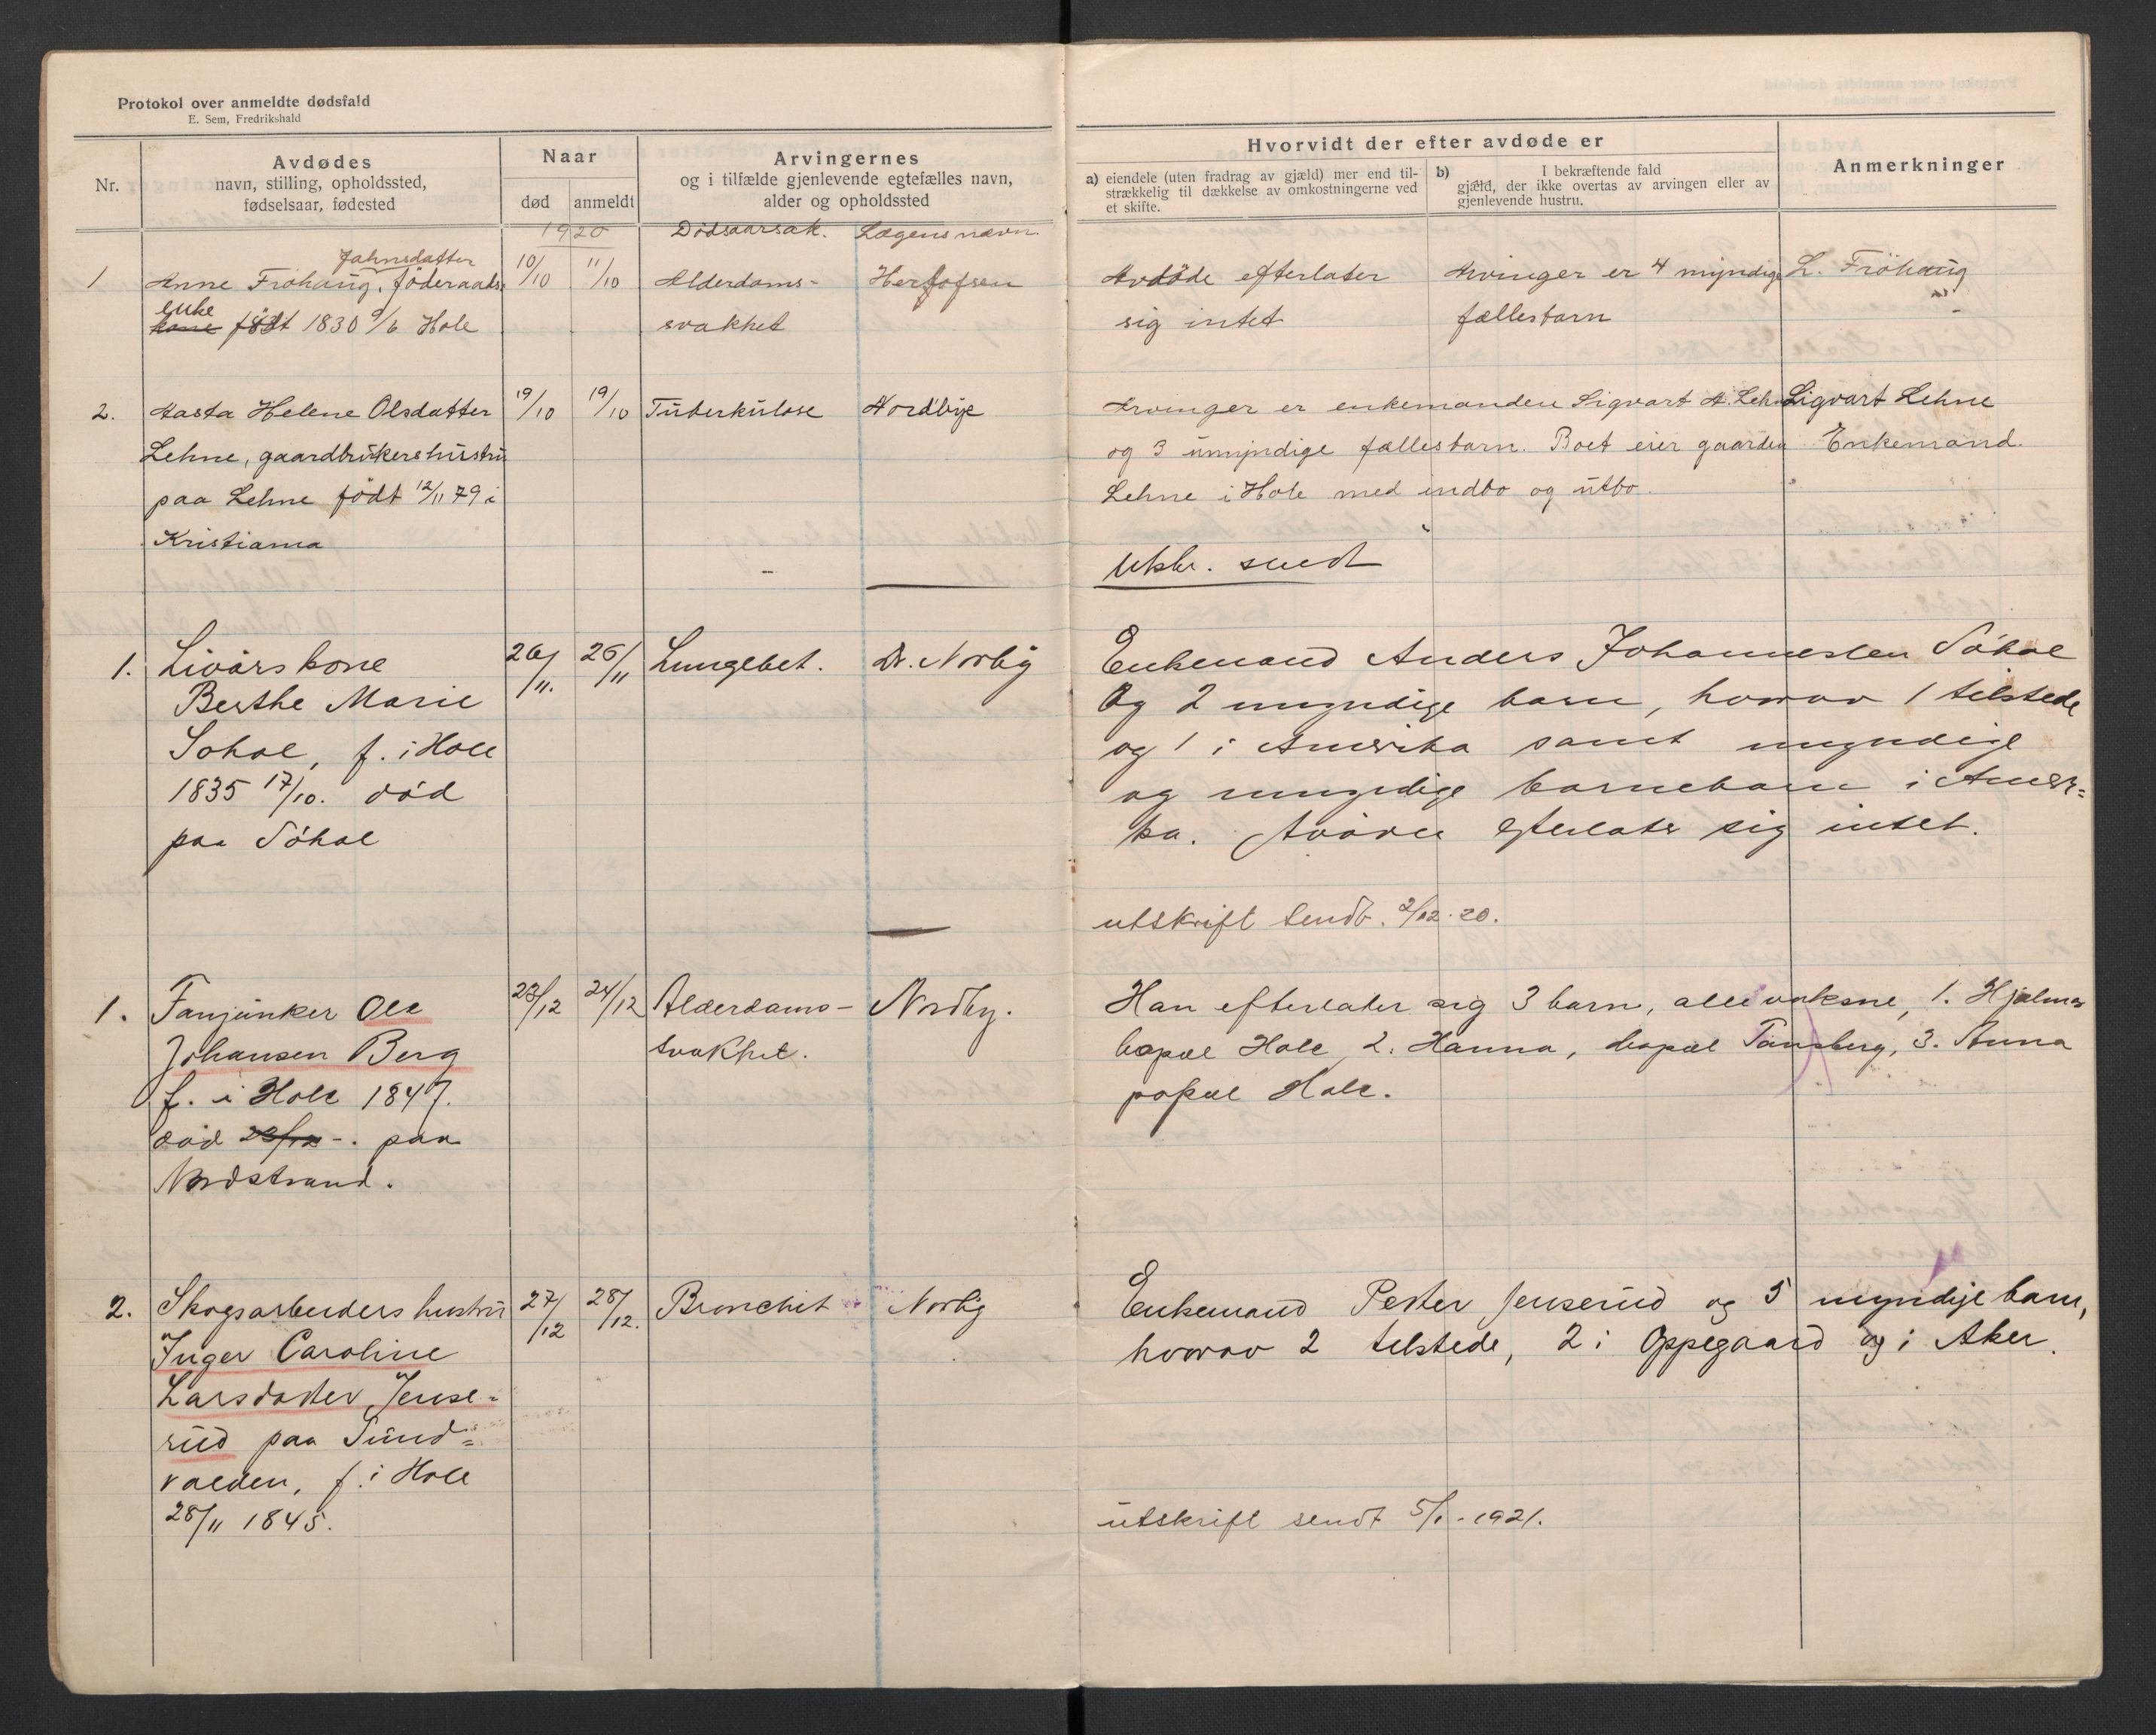 Protokol over anmeldte dødsfald
E. Sem, Fredrikshald
Nr.
Avdødes
navn, stilling, opholdssted,
fødselsaar, fødested
Naar
død
anmeldt
Arvingernes
og i tilfælde gjenlevende egtefælles navn,
alder og opholdssted
Hvorvidt der efter avdøde er
a) eiendele (uten fradrag av gjæld) mer end til-
strækkelig til dækkelse av omkostningerne ved
et skifte.
b) I bekræftende fald
gjæld, der ikke overtas av arvingen eller av
gjenlevende hustru.
Anmerkninger
1920
Dödsaarsak. Lægens navn.
Jahnsdatter
1 Anne Fröhaug, föderaads-
enke
kone födt 1830 9/6 Hole
10/10 11/10
Alderdoms-
svakhet
Avdöde efterlater
sig intet
Arvinger er 4 myndige
fællesbarn
L. Fröhaug
2. Aasta Helene Olsdatter
Lehne, gaardbrukershustru
paa Lehne födt 12/11 79 i
Kristiania
19/10 19/10
Tuberkulose
Nordbye
Arvinger er enkemanden Sigvart A. Lehne
og 3 umyndige fællesbarn. Boet eier gaarden
Lehne i Hole med indbo og utbo.
Sigvart Lehne
Enkemand.
Utskr. sendt
1. Livörs kone
Berthe Marie
Sohol, f. i Hole
1835 17/10. död
paa Söhol
26/11. 26/11
Lungebet.
Dr. Norby
Enkemand Anders Johannesen Söhol
og 2 myndige barn, hvorav 1 tilstede
og 1 i Amerika samt myndige
og umyndige barnebarn i Ameri=
ka. Avdöde efterlater sig intet.
utskrift sendt. 2/12.20.
1. Fanjunker Ole
Johansen Berg
f. i Hole 1847.
död 23/12 -. paa
Nordstrand.
23/12 24/12
Alderdoms-
svakhet.
Nordby.
Han efterlater sig 3 barn, alle voksne, 1. Hjalmar
bopæl Hole, 2. Hanna, bopæl Tönsberg, 3. Anna
bopæl Hole.
2. Skogsarbeiders hustru
Inger Caroline
Larsdatter Jense-
rud paa Sund=
volden, f. i Hole
28/11 1845.
27/12 28/12.
Bronchit
Norby
Enkemand Petter Jenserud og 5 myndige barn,
hvorav 2 tilstede, 2 i Oppegaard og i Aker.
utskrift sendt 5/1.-1921.